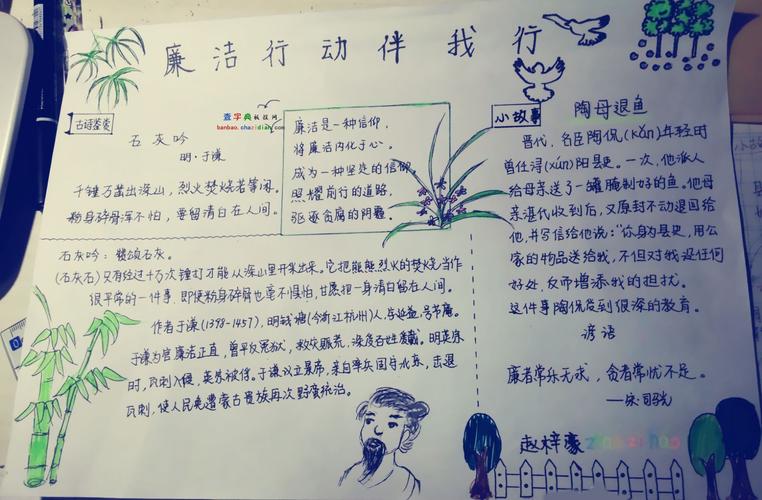 廉洁行动伴我行
古诗鉴赏
石灰吟
明·于谦
千锤万凿出深山，烈火焚烧若等闲。
粉身碎骨浑不怕，要留清白在人间。
查字典板报网
banbao.chazidian.com
廉洁是一种信仰，
将廉洁内化于心。
成为一种坚定的信仰
照耀前行的道路，
驱逐贪腐的阴霾。
石灰吟：赞颂石灰。
(石灰石)又有经过千万次锤打才能从深山里开采出来。它把熊熊烈火的焚烧当作
很平常的一件事，即使粉身碎骨也毫不惧怕，甘愿把一身清白留在人间。
作者于谦(1398-1457)，明钱塘(今浙江杭州)人，字廷益，号节庵。
于谦为官廉洁正直，曾平反冤狱，救灾赈荒，深受百姓爱戴。明英宗
时，瓦剌入侵，英宗被俘。于谦议立景帝，亲自率兵固守北京，击退
瓦剌，使人民免遭蒙古贵族再次野蛮统治。
小故事
陶母退鱼
晋代，名臣陶侃(kǎn)年轻时
曾任浔(xún)阳县吏。一次，他派人
给母亲送了一罐腌制好的鱼。他母
亲湛代收到后，又原封不动退回给
他，并写信给他说："你身为县吏，用公
家的物品送给我，不但对我没任何
好处，反而增添我的担扰。
这件事陶侃受到很深的教育。
谚语
廉者常乐无求，贪者常忧不足。
——宋·司马光
赵梓豪